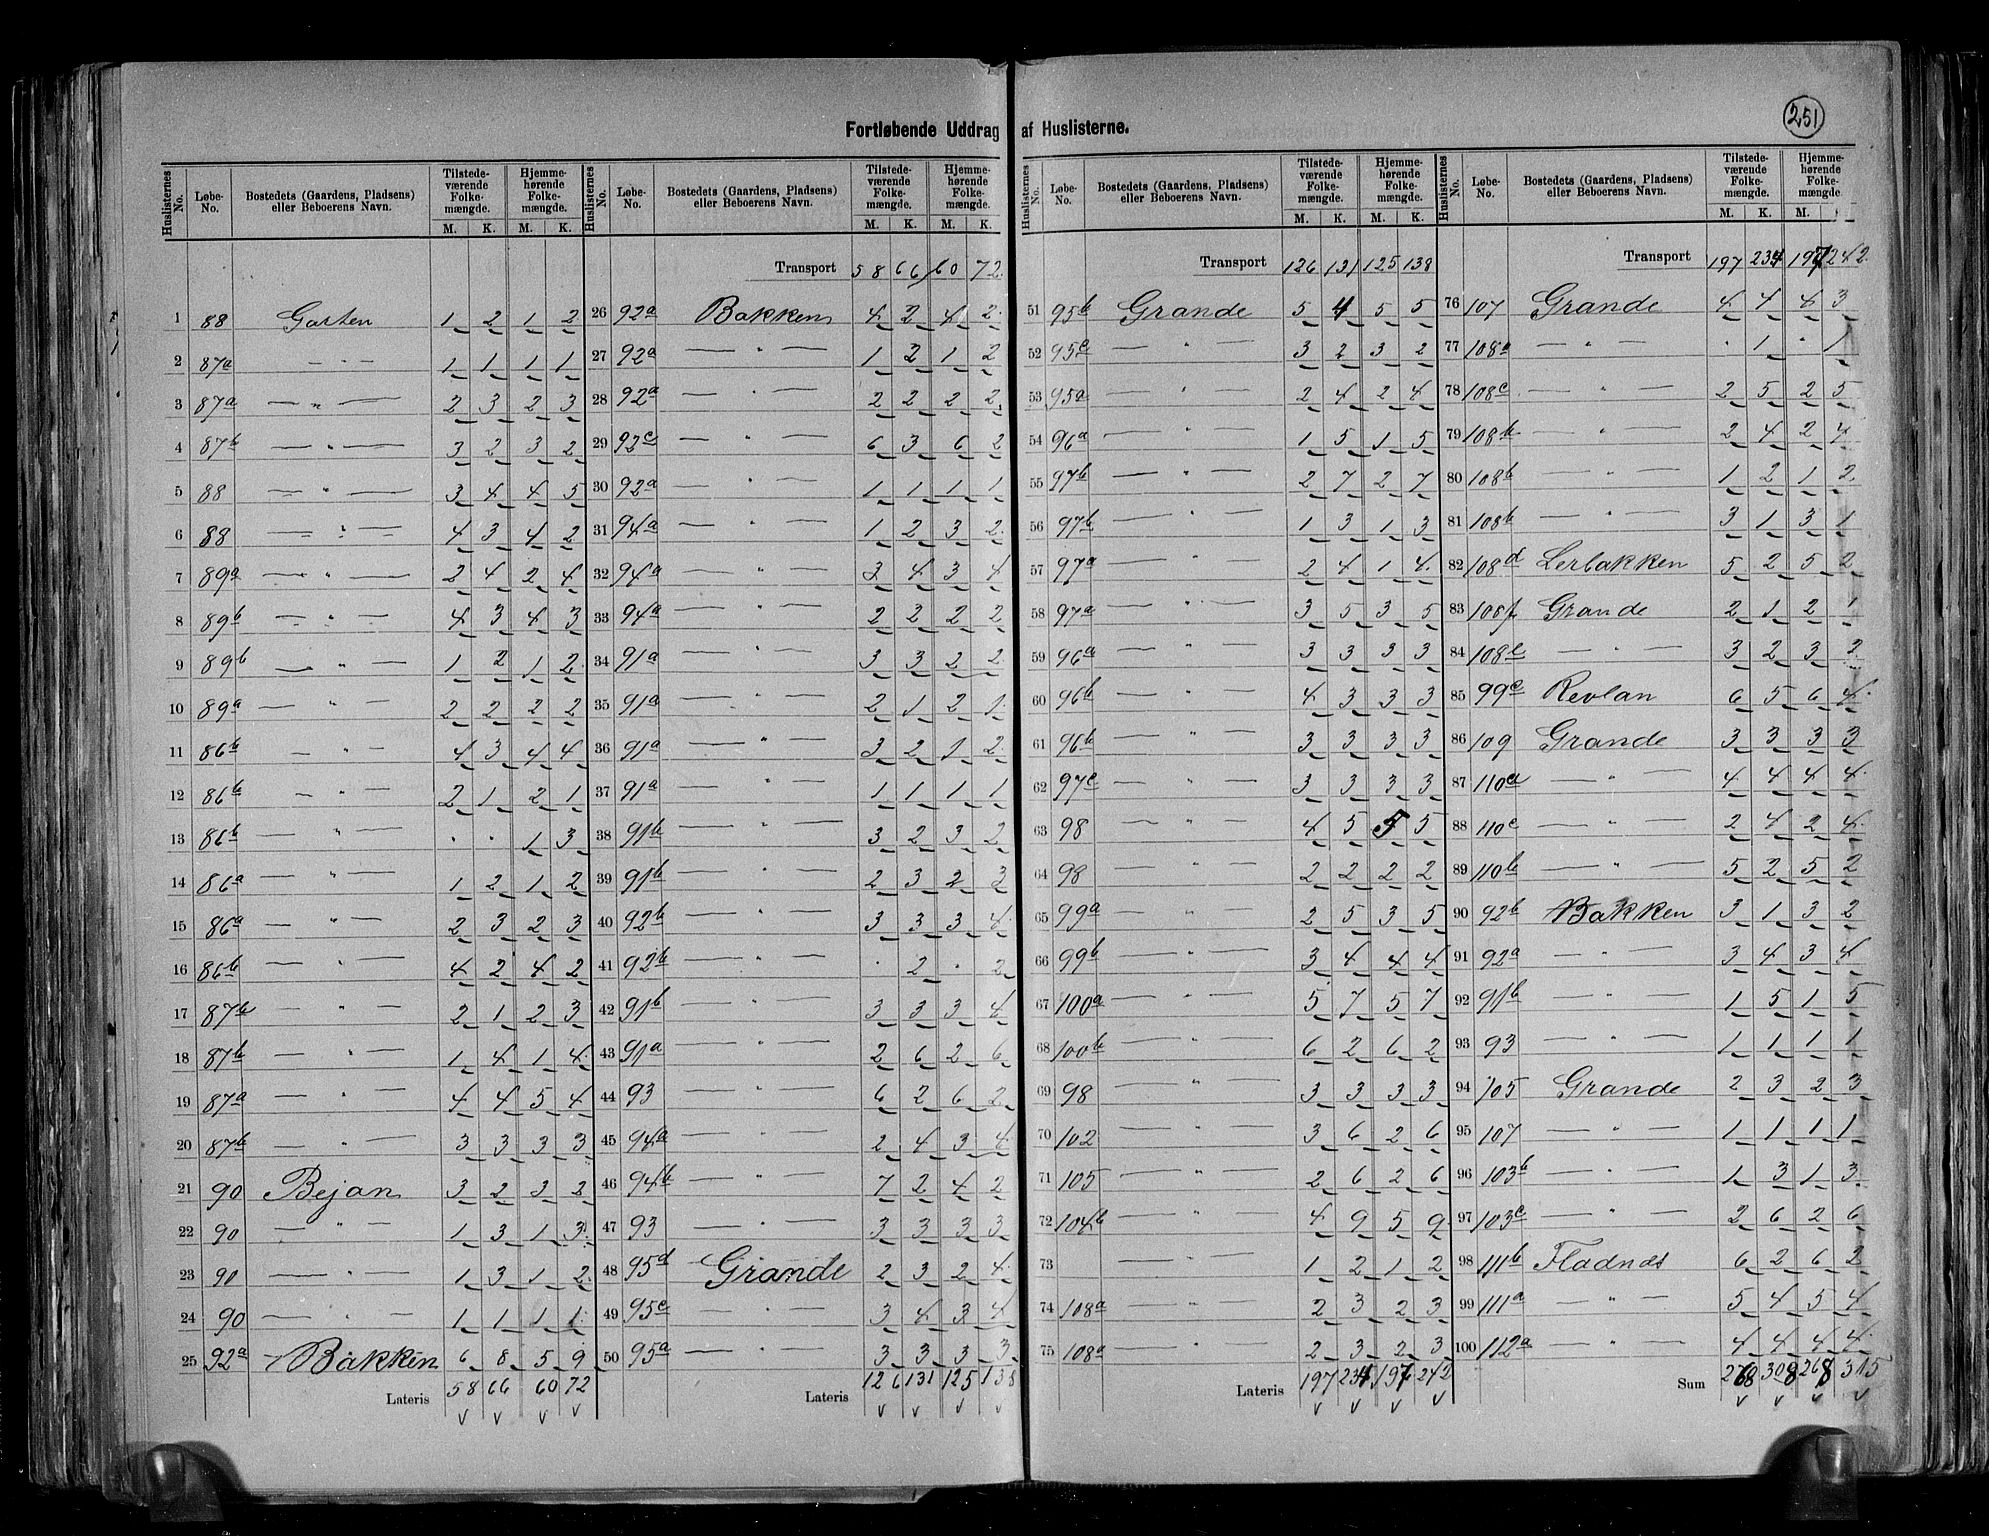 251
Fortløbende Uddrag af Huslisterne.
Huslisternes No. | Løbe-No. | Bostedets (Gaardens, Pladsens) eller Beboerens Navn. | Tilstede-værende Folke-mængde. M. K. | Hjemme-hørende Folke-mængde. M. K.
1 88 Garten 1 2 1 2
2 87a — " — 1 1 1 1
3 87a — " — 2 3 2 3
4 87b — " — 3 2 3 2
5 88 — " — 3 4 4 5
6 88 — " — 4 3 4 2
7 89a — " — 2 4 2 4
8 89b — " — 4 3 4 3
9 89b — " — 1 2 1 2
10 89a — " — 2 2 2 2
11 86b — " — 4 3 4 4
12 86b — " — 2 1 2 1
13 86b — " — . . 1 3
14 86a — " — 1 2 1 2
15 86a — " — 2 3 2 3
16 86b — " — 4 2 4 2
17 87b — " — 2 1 2 3
18 87b — " — 1 4 1 4
19 87a — " — 4 4 5 4
20 87b — " — 3 3 3 3
21 90 Bejan 3 2 3 2
22 90 — " — 1 3 1 3
23 90 — " — 1 3 1 2
24 90 — " — 1 1 1 1
25 92a Bakken 6 8 5 9
Lateris 58 66 60 72
Huslisternes No. | Løbe-No. | Bostedets (Gaardens, Pladsens) eller Beboerens Navn. | Tilstede-værende Folke-mængde. M. K. | Hjemme-hørende Folke-mængde. M. K.
Transport 58 66 60 72
26 92a Bakken 4 2 4 2
27 92a — " — 1 2 1 2
28 92a — " — 2 2 2 2
29 92c — " — 6 3 6 2
30 92a — " — 1 1 1 1
31 94a — " — 1 2 3 2
32 94a — " — 3 4 3 4
33 94a — " — 2 2 2 2
34 91a — " — 3 3 2 2
35 91a — " — 2 1 2 1
36 91a — " — 3 2 1 2
37 91a — " — 1 1 1 1
38 91b — " — 3 2 3 2
39 91b — " — 2 3 2 3
40 92b — " — 3 3 3 4
41 92b — " — . 2 . 2
42 91b — " — 3 3 3 4
43 91a — " — 2 6 2 6
44 93 — " — 6 2 6 2
45 94a — " — 2 4 3 4
46 94b — " — 7 2 4 2
47 93 — " — 3 3 3 3
48 95d Grande 2 3 2 4
49 95c — " — 3 4 3 4
50 95a — " — 3 3 3 3
Lateris 126 131 125 138
Huslisternes No. | Løbe-No. | Bostedets (Gaardens, Pladsens) eller Beboerens Navn. | Tilstede-værende Folke-mængde. M. K. | Hjemme-hørende Folke-mængde. M. K.
Transport 126 131 125 138
51 95b Grande 5 4 5 5
52 95c — " — 3 2 3 2
53 95a — " — 2 4 2 4
54 96a — " — 1 5 1 5
55 97b — " — 2 7 2 7
56 97b — " — 1 3 1 3
57 97a — " — 2 4 1 4
58 97a — " — 3 5 3 5
59 96a — " — 3 3 3 3
60 96b — " — 4 3 3 3
61 96b — " — 3 3 3 3
62 97c — " — 3 3 3 3
63 98 — " — 4 5 5 5
64 98 — " — 2 2 2 2
65 99a — " — 2 5 3 5
66 99b — " — 3 4 4 4
67 100a — " — 5 7 5 7
68 100b — " — 6 2 6 2
69 98 — " — 3 3 3 3
70 102 — " — 3 6 2 6
71 105 — " — 2 6 2 6
72 104b — " — 4 9 5 9
73 — 1 2 1 2
74 108a — " — 2 3 2 3
75 108a — " — 2 3 2 3
Lateris 197 234 197 242
Huslisternes No. | Løbe-No. | Bostedets (Gaardens, Pladsens) eller Beboerens Navn. | Tilstede-værende Folke-mængde. M. K. | Hjemme-hørende Folke-mængde. M.
Transport 197 234 197 242
76 107 Grande 4 4 4 3
77 108a — " — . 1 . 1
78 108c — " — 2 5 2 5
79 108b — " — 2 4 2 4
80 108b — " — 1 2 1 2
81 108b — " — 3 1 3 1
82 108d Lerbakken 5 2 5 2
83 108f Grande 2 1 2 1
84 108e — " — 3 2 3 2
85 99c Revlan 6 5 6 4
86 109 Grande 3 3 3 3
87 110a — " — 4 4 4 4
88 110c — " — 2 4 2 4
89 110b — " — 5 2 5 2
90 92b Bakken 3 1 3 2
91 92a — " — 3 4 3 4
92 91b — " — 1 5 1 5
93 93 — " — 1 1 1 1
94 105 Grande 2 3 2 3
95 107 — " — 1 1 1 1
96 103b — " — 1 3 1 3
97 103c — " — 2 6 2 6
98 111b Fladnes 6 2 6 2
99 111a — " — 5 4 5 4
100 112a — " — 4 4 4 4
Sum 268 308 268 315